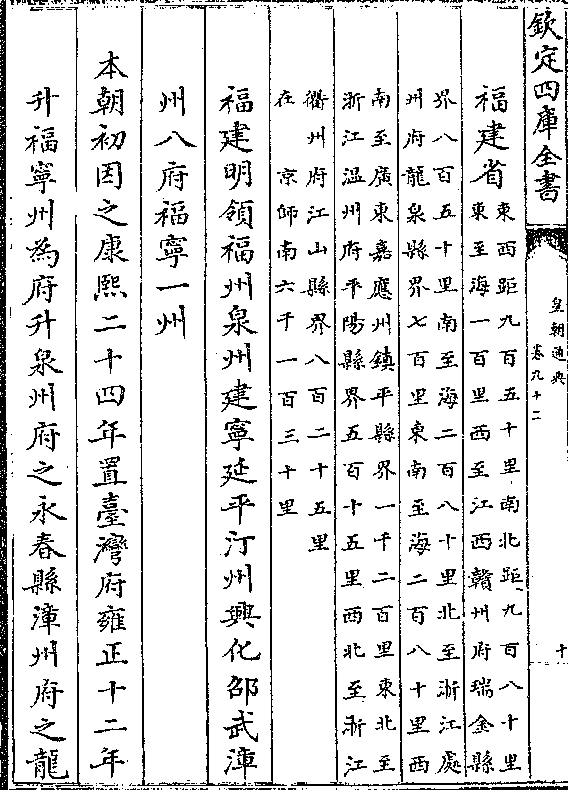 欽定四庫全書
皇朝通典
卷九十二
十
福建省
東西距九百五十里南北距九百八十里
東至海一百里西至江西贛州府瑞金縣
界八百五十里南至海二百八十里北至浙江處
州府龍泉縣界七百里東南至海二百八十里西
南至廣東嘉應州鎮平縣界一千二百里東北至
浙江温州府平陽縣界五百十五里西北至浙江
衢州府江山縣界八百二十五里
在 京師南六千一百三十里
福建明領福州泉州建寧延平汀州興化邵武漳
州八府福寧一州
本朝初因之康熙二十四年置臺灣府雍正十二年
升福寧州為府升泉州府之永春縣漳州府之龍